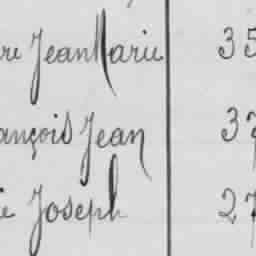 re Jean Marie 35
ançois Jean 37
ie Joseph 27